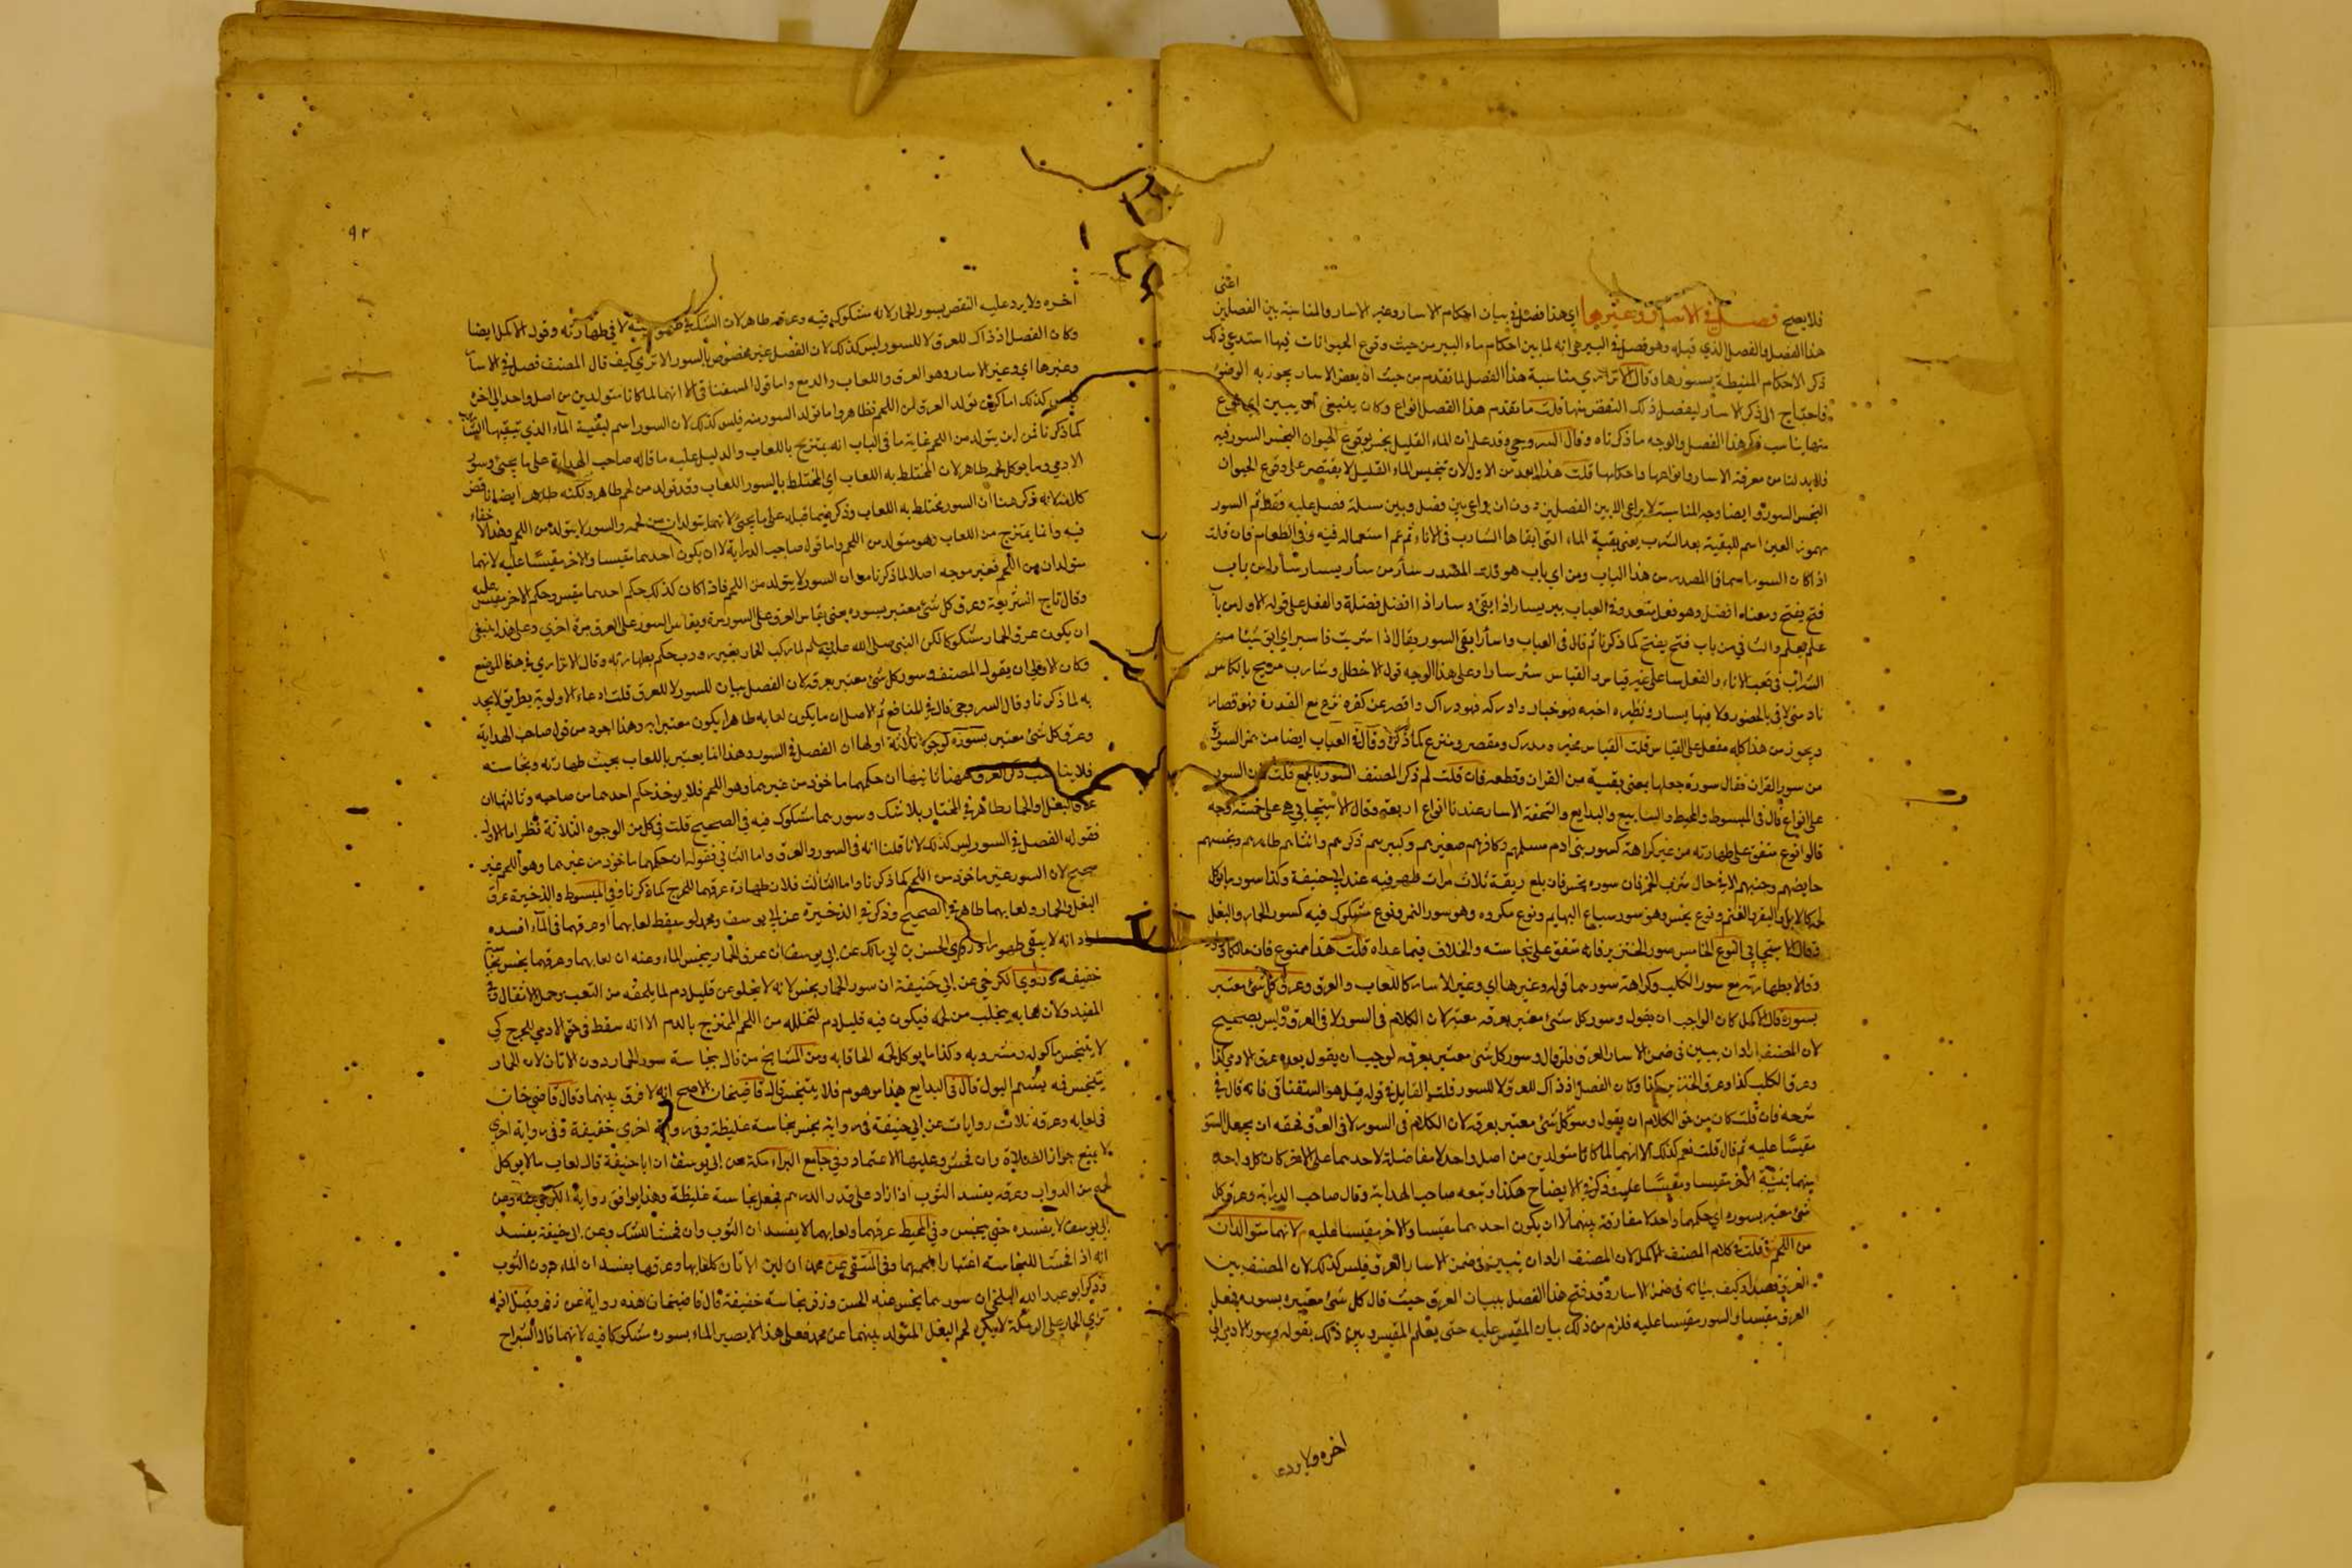 اعنى
فلا يصح فصل في الاسار وغيرها اي هذا فصل في بيان احكام الاسار وغير الاسار والمناسبة بين الفصلين
هذا الفصل والفصل الذي قبله وهو فصل في البير هي انه لما بين احكام ماء البير من حيث وقوع الحيوانات فيها استدعى ذلك
ذكر الاحكام المنيطة بسورها وقال الاترازي مناسبة هذا الفصل لما تقدم من حيث ان بعض الاسار يجوز به الوضوء
فاحتاج الى ذكر الاسار ليفصل ذلك النقض منها قلت ما تقدم هذا الفصل انواع وكان ينبغي ان يبين اي نوع
منها يناسب ذكر هذا الفصل والوجه ما ذكرناه وقال السروجي وقد علم ان الماء القليل بنجس بوقوع الحيوان النجس السور فيه
فلا بد لنا من معرفة الاسار وانواعها واحكامها قلت هذا ابعد من الاول لان تنجيس الماء القليل لا يقتصر على وقوع الحيوان
النجس السور وايضا وجه المناسبة لا يراعى الا بين الفصلين دون ان يراعى بين فصل وبين مسلة فصل عليه فقط ثم السور
مهموز العين اسم للبقية بعد الشرب يعني بقية الماء التي ابقاها الشارب في الاناء ثم عم استعماله فيه وفي الطعام فان قلت
اذا كان السور اسما فما المصدر من هذا الباب ومن اي باب هو قلت المصدر سأر من سأر يسأر سأرا من باب
فتح يفتح ومعناه افضل وهو فعل متعد وفي العباب يبر يسار اذا ابقى وسار اذا افضل فضلة والفعل على قوله الاول من باب
علم يعلم والثاني من باب فتح يفتح كما ذكرنا ثم قال في العباب واسأر ابقى السور يقال اذا شربت فاسير اي ابق شيئا من
الشراب في قعر الاناء والفعل سا على غير قياس والقياس سئر سارا وعلى هذا الوجه قول الاخطل وشارب مربح بالكاس
نادمني لا بالحصور ولا فيها بسار ونظيره اخبه فهو خبار وادركه فهو دراك واقصر عن كفره نزع مع القدرة فهو قصار
ويجوز من هذا كله مفعل على القياس قلت القياس مخبر ومدرك ومقصر ومنزع كما ذكره وقال في العباب ايضا من همز السورة
من سور القران فقال سورة جعلها بمعنى بقية من القران وقطعه فان قلت لم ذكر المصنف السور بالجمع قلت لان السور
على انواع قال في المبسوط والمحيط والينابيع والبدايع والتحفة الاسار عندنا انواع اربعة وقال الاسبيجابي هي على خمسة اوجه
قالوا نوع متفق على طهارته من غير كراهة كسور بني ادم مسلمهم وكافرهم صغيرهم وكبيرهم ذكرهم وانثاهم طاهرهم ونجسهم
حايضهم وجنبهم الا في حال شرب الخمر فان سوره نجس فان بلع ريقه ثلاث مرات طهر فيه عند ابي حنيفة وكذا سور مايوكل
لحمه كالابل والبقر والغنم ونوع نجس وهو سور سباع البهايم ونوع مكروه وهو سور الهر ونوع مشكوك فيه كسور الحمار والبغل
وقال الاسبيجابي النوع الخامس سور الخنزير فانه متفق على نجاسته والخلاف فيما عداه قلت هذا ممنوع فان مالكا
وقالا بطهارته مع سور الكلب وكراهة سورهما قوله وغيرها اي وغير الاسار كاللعاب والعرق وعرق كل شئ معتبر
بسوره قال الاكمل كان الواجب ان يقول وسور كل شئ معتبر بعرقه معتبر لان الكلام في السور لا في العرق وليس بصحيح
لان المصنف اراد ان يبين في ضمن الاسار العرق فلو قال وسور كل شئ معتبر بعرقه لوجب ان يقول بعده عرق الادمي كذا
وعرق الكلب كذا وعرق الخنزير كذا وكان الفصل اذ ذاك للعرق لا للسور قلت القايل في قوله قيل هو السغناقي فانه قال في
شرحه فان قلت كان من حق الكلام ان يقول وسور كل شئ معتبر بعرقه لان الكلام في السور لا في العرق فحقه ان يجعل السور
مقيسا عليه ثم قال قلت نعم كذلك الا انهما لما كانا متولدين من اصل واحد لا مفاضلة لاحدهما على الاخر كان كل واحد
بينهما بنسبة الاخر مقيسا ومقيسا عليه وذكر في الايضاح هكذا وتبعه صاحب الهداية وقال صاحب الدراية وعرق كل
شئ معتبر بسوره اي حكمهما واحد لا مفارقة بينهما لا ان يكون احدهما مقيسا والاخر مقيسا عليه لانهما متولدان
من اللحم قلت في كلام المصنف الاكمل لان المصنف اراد ان يبين في ضمن الاسار العرق فليس كذلك لان المصنف بين
العرق قصدا وكيف بيانه في ضمن الاسار وقد فتح هذا الفصل ببيان العرق حيث قال كل شئ معتبر بسوره فجعل
العرق مقيسا والسور مقيسا عليه فلزم من ذلك بيان المقيس عليه حتى يعلم المقيس وبين ذلك بقوله وسور الادمي الى
اخره ولا يرد
٩٢
اخره ولا يرد عليه النقض بسور الحمار لانه مشكوك فيه وعرقه طاهر لان الشك في طهوريته لا في طهارته وقول الاكمل ايضا
وكان الفصل اذ ذاك للعرق لا للسور ليس كذلك لان الفصل غير مخصوص بالسور الا ترى كيف قال المصنف فصل في الاسار
وغيرها اي وغير الاسار وهو العرق واللعاب والدمع واما قول السغناقي الا انهما لما كانا متولدين من اصل واحد الى اخره
فليس كذلك اما كون تولد العرق من اللحم فظاهر واما تولد السور منه فليس كذلك لان السور اسم لبقية الماء الذي يبقيها الشارب
كما ذكرنا فمن اين يتولد من اللحم غاية ما في الباب انه يمتزج باللعاب والدليل عليه ما قاله صاحب الهداية على ما يجئ وسور
الادمي وما يوكل لحمه طاهر لان المختلط به اللعاب اي المختلط بالسور اللعاب وقد تولد من لحم طاهر ولكنه طاهر ايضا ناقض
كلامه لانه ذكر هنا ان السور يختلط به اللعاب وذكر فيما قبله على ما يجئ لانهما يتولدان من لحمه والسور لا يتولد من اللحم وهذا لا خفاء
فيه وانما يمتزج من اللعاب وهو متولد من اللحم واما قول صاحب الدراية لا ان يكون احدهما مقيسا والاخر مقيسا عليه لانهما
متولدان من اللحم فغير موجه اصلا لما ذكرنا من ان السور لا يتولد من اللحم فاذا كان كذلك حكم احدهما مقيس وحكم الاخر مقيس عليه
وقال تاج الشريعة وعرق كل شئ معتبر بسوره يعني يقاس العرق على السور مرة ويقاس السور على العرق مرة اخرى وعلى هذا ينبغي
ان يكون عرق الحمار مشكوكا لكن النبي صلى الله عليه وسلم لما ركب الحمار بغير رودب حكم بطهارته وقال الاترازي في هذا الموضع
وكان الاولى ان يقول المصنف وسور كل شئ معتبر بعرقه لان الفصل بيان للسور لا للعرق قلت ادعاء الاولوية بطريق لا يجد
به لما ذكرنا وقال السروجي قال في المنافع ثم الاصل ان ما يكون لعابه طاهرا يكون معتبرا به وهذا اجود من قول صاحب الهداية
وعرق كل شئ معتبر بسوره لوجوه ثلاثة اولها ان الفصل في السور وهذا انما يعتبر باللعاب بحيث طهارته ونجاسته
فلا يناسب ذكر العرق ههنا ثانيها ان حكمهما ماخوذ من غيرهما وهو اللحم فلا يوخذ حكم احدهما من صاحبه وثالثها ان
عرق البغل والحمار طاهر في المختار بلا شك وسورهما مشكوك فيه في الصحيح قلت في كل من الوجوه الثلاثة نظر اما الاول
فقوله الفصل في السور ليس كذلك لانا قلنا انه في السور والعرق واما الثاني فقوله ان حكمهما ماخوذ من غيرهما وهو اللحم غير
صحيح لان السور غير ماخوذ من اللحم كما ذكرنا واما الثالث فلان طهارة عرقهما للحرج كما ذكرنا وفي المبسوط والذخيرة عرق
البغل والحمار ولعابهما طاهر في الصحيح وذكر في الذخيرة عن ابي يوسف ومحمد لو سقط لعابهما او عرقهما في الماء افسده
اراد انه لا يبقى طهورا وروى الحسن بن ابي مالك عن ابي يوسف ان عرق الحمار ينجس الماء وعنه ان لعابهما وعرقهما نجس نجاسة
خفيفة وروى الكرخي عن ابي حنيفة ان سور الحمار نجس لانه لا يخلو عن قليل دم لما يلحقه من التعب وحمل الاثقال
المفيد ولان لعابه يتجلب من لحمه فيكون فيه قليل دم لتخلله من اللحم الممتزج بالدم الا انه سقط في حق الادمي للحرج كي
لا يتنجس ماكوله ومشروبه وكذا ما يوكل لحمه الحاقا به ومن المشايخ من قال بنجاسة سور الحمار دون الاتان لان الحمار
يتنجس فمه بشم البول قال في البدايع هذا موهوم فلا يتنجس قال قاضيخان الاصح انه لا فرق بينهما وقال قاضي خان
في لعابه وعرقه ثلاث روايات عن ابي حنيفة في رواية نجس نجاسة غليظة وفي رواية اخرى خفيفة وفي رواية اخرى
لا يمنع جواز الصلاة وان فحش وعليها الاعتماد وفي جامع البرامكة عن ابي يوسف ان ابا حنيفة قال لعاب مالا يوكل
لحمه من الدواب وعرقه يفسد الثوب اذا زاد على قدر الدرهم فجعل نجاسة غليظة وهذا يوافق رواية الكرخي عنه وعن
ابي يوسف لا يفسده حتى يفحش وفي المحيط عرقهما ولعابهما لا يفسدان الثوب وان فحشا للشك وعن ابي حنيفة يفسد
انه اذا فحشا للنجاسة اعتبارا بلحمهما وفي المنتقى عن محمد ان لبن الاتان كلعابها وعرقها يفسدان الماء دون الثوب
وذكر ابو عبد الله البلخي ان سورهما نجس عند الحسن وزفر نجاسة خفيفة قال قاضيخان هذه رواية عن زفر وقيل اذا
نزى الحمار على الرمكة لا يكره لحم البغل المتولد بينهما عن محمد فعلى هذا لا يصير الماء بسوره مشكوكا فيه لانهما قاله السراج